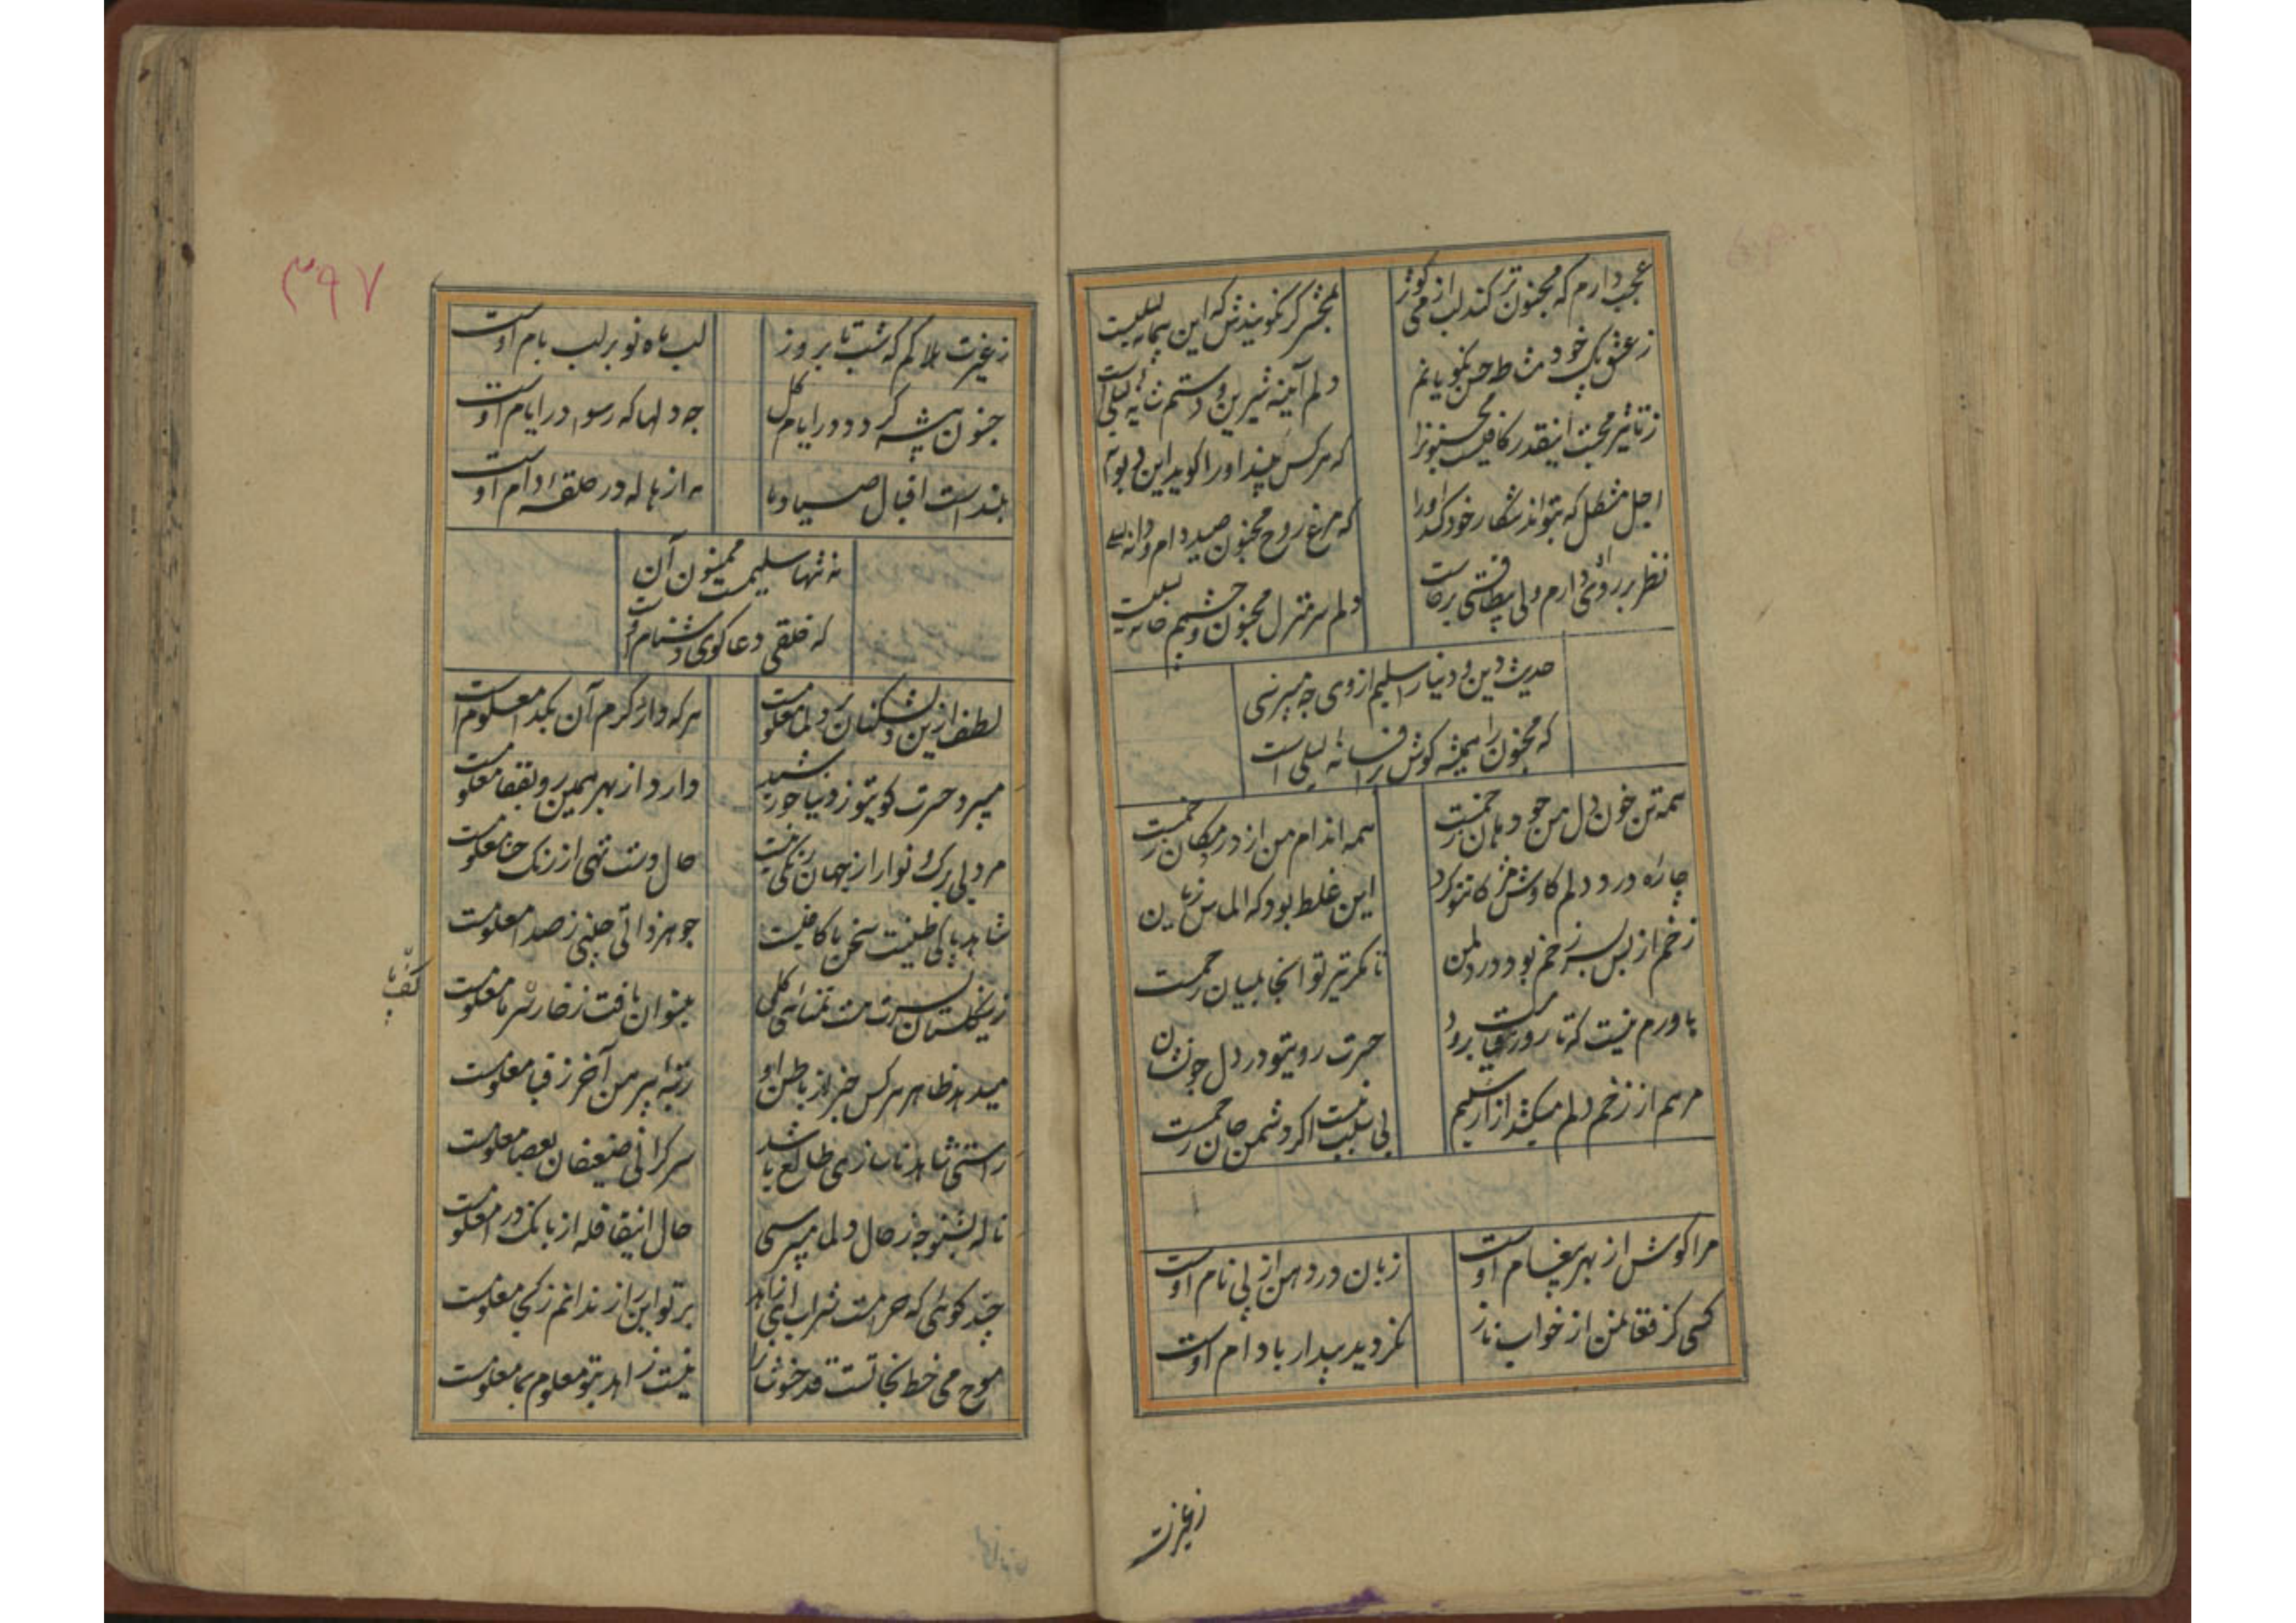 عجب دارم که مجنون تر کند لب از می کوثر
بمحشر گر نگویندش که این پیمانه لیلیست
ز عشق پاک خود مشاطه حسن نکویانم
دلم آئینه شیرین و دستم شانه لیلی است
ز تاثیر محبت اینقدر کافیست مجنونرا
که هر کس بیند او را کوید این دیوانه
اجل مشکل که بتواند شکار خود کند او را
که مرغ روح مجنون صید دام و دانه
نظر بر روی دارم ولی
دلم سر منزل مجنون و چشمم خانه لیلیست
حدیث دین و دنیا را سلیم از وی چه میپرسی
که مجنون را همیشه کوش بر افسانه لیلی است
همه تن خون دل من چو دهان زخمست
همه اندام من از درد پیکان زخمست
چاره درد دلم کاوش مژکان تو کرد
این غلط بود که الماس زیان
زخم از بس بسر زخم بود در دل من
تا کمر تیر تو اینجا بمیان زخمست
باورم نیست که تا روز قیامت برود
حسرت روی تو در دل چو نشان
مرهم از زخم دلم میکشد ازار سلیم
بی سبب نیست اکر دشمن جان زخمست
مرا کوش از بهر پیغام اوست
زبان در دهن از پی نام اوست
کسی کز فغانمن از خواب ناز
نکردید بیدار بادام اوست
زغیرت
۳۹۷
زغیرت هلاکم که شب تا بروز
لب ماه نو بر لب بام اوست
جنون پیشه کردد در ایام کل
چه دلها که رسوا در ایام اوست
بلند است اقبال صیاد ما
مه از هاله در حلقه دام اوست
نه تنها سلیمست ممنون آن
که خلقی دعا کوی دشنام اوست
لطف ازین دلشکنان بر دل ما معلومست
هر که دارد کرم آن بکدا معلوم است
میبرد حسرت کوی تو ز دنیا خورشید
دارد از بهر همین رو بقفا معلومست
مرد بی برک و نوا را ز جهان رنکی نیست
حال دست تهی از رنک حنا معلومست
شاهد پاکی طینت سخن ما کافیست
جوهر ذاتی چینی ز صدا معلومست
زین کلستان بسرت هست تمنای کلی
میتوان یافت ز خار سر ما معلومست
کف پا
میدهد ظاهر هر کس خبر از باطن او
رتبه پیرهن آخر ز قبا معلومست
راستی شاهد ناسازی طالع باشد
سرکرانی ضعیفان بعصا معلومست
ناله بشنو چه ز حال دل ما میپرسی
حال اینقافله از بانک درا معلومست
چند کوئی که حرامست شراب ای زاهد
بر تو این راز ندانم ز کجا معلومست
موج می خط نجاتست قدح نوشان را
نیست زاهد بتو معلوم بما معلومست